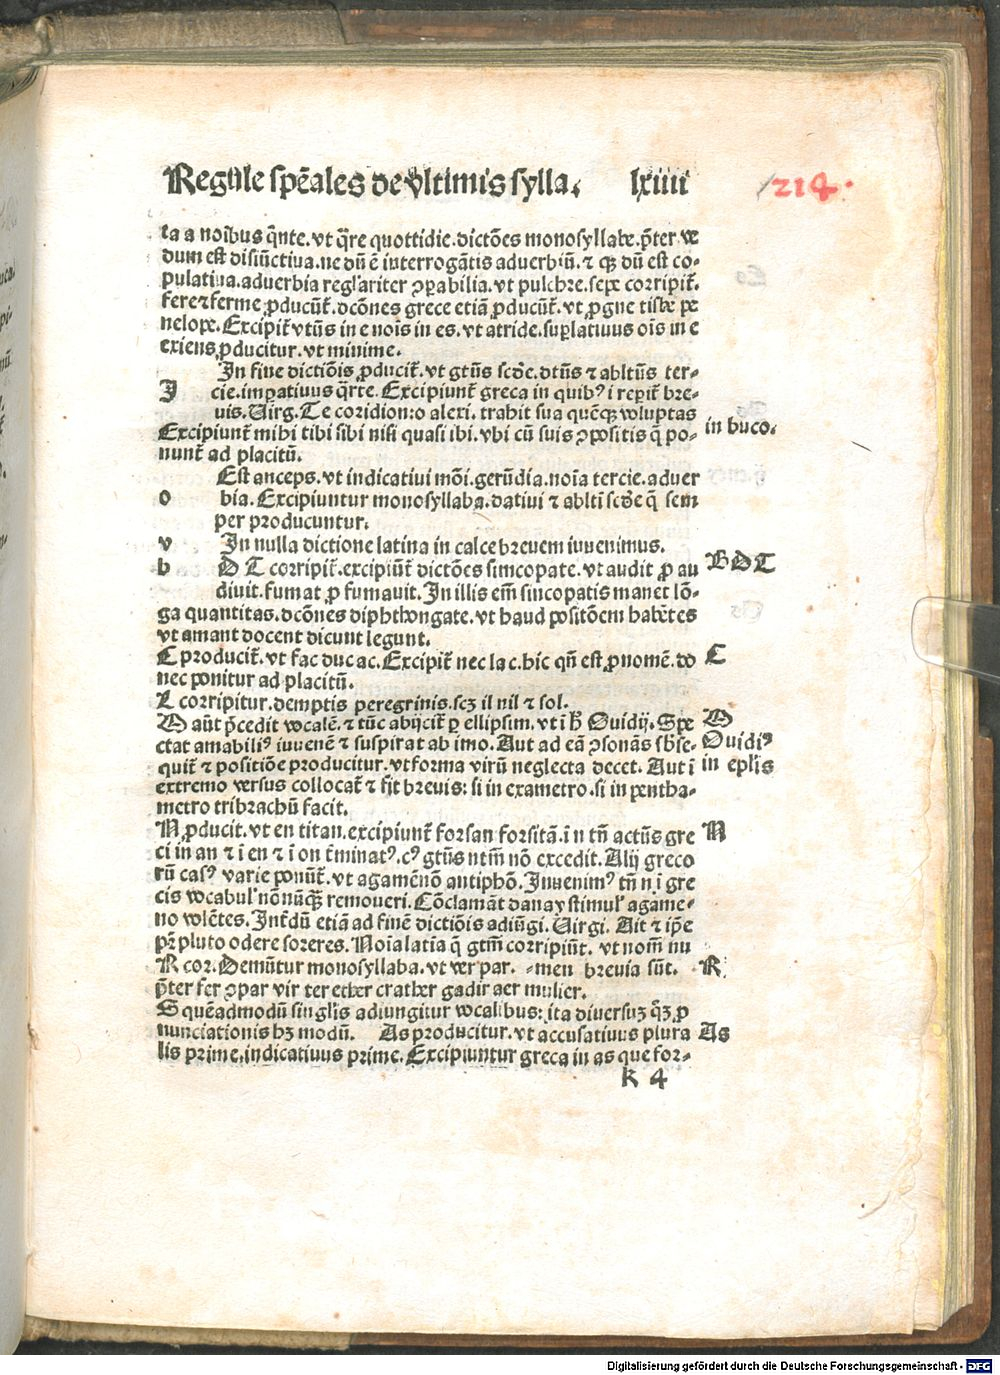 Regule spēales de vltimis sylla. lxiiii
214.
ta a noibus q̄nte. vt q̄re quottidie. dictōes monosyllabe. p̄ter ve
dum est disiūctiua. ne dū ē interrogātis aduerbiū. ⁊ qꝫ dū est co-
pulatiua. aduerbia regl'ariter ꝯpabilia. vt pulchre. sepe corripit̄.
fere ⁊ ferme ꝓducūt. dcōnes grece etiā ꝓducūt. vt ꝓgne tisbe pe
nelope. Excipit̄ vtūs in e nois in es. vt atride. suplatiuus ois in e
exiens ꝓducitur. vt minime.
In fine dictiōis ꝓducit̄. vt gtūs scd̄e. dtūs ⁊ abltūs ter-
I cie. impatiuus q̄rte. Excipiunt̄ greca in quibꝰ i reperit̄ bre-
uis. Virg. Te coridion: o alexi. trahit sua quēqꝫ voluptas
Excipiunt̄ mihi tibi sibi nisi quasi ibi. vbi cū suis ꝯpositis q̄ po-
in buco.
nunt̄ ad placitū.
Est anceps. vt indicatiui mōi. gerūdia. noīa tercie. aduer
o bia. Excipiuntur monosyllaba. datiui ⁊ abltī scd̄e q̄ sem
per producuntur.
v In nulla dictione latina in calce breuem inuenimus.
b D T corripit̄. excipiūt̄ dictōes simcopate. vt audit ꝓ au
B D T
diuit. fumat ꝓ fumauit. In illis em̄ sincopatis manet lō-
ga quantitas. dcōnes diphthongate. vt haud positōem habētes
vt amant docent dicunt legunt.
C producit̄. vt fac duc ac. Excipit̄ nec lac. hic qn̄ est ꝓnomē. do
C
nec ponitur ad placitū.
L corripitur. demptis peregrinis. scꝫ il nil ⁊ sol.
M aūt p̄cedit vocalē. ⁊ tūc abijcit̄ p ellipsim. vt ī h̄ Ouidij. Spe
M
ctat amabiliꝰ iuuenē ⁊ suspirat ab imo. Aut ad eā ꝯsonās sb̄se-
Ouidiꝰ
quit̄ ⁊ positiōe producitur. vt forma virū neglecta decet. Aut ī
in eplis
extremo versus collocat̄ ⁊ fit breuis: si in exametro. si in pentha-
metro tribrachū facit.
N ꝓducit. vt en titan. excipiunt̄ forsan forsitā. ī n tn̄ actūs gre
N
ci in an ⁊ ī en ⁊ ī on t̄minatꝰ. cꝰ gtūs ntm̄ nō excedit. Alij greco
rū casꝰ varie ponūt̄. vt agamēnō antiphō. Inuenimꝰ tn̄ n ī gre
cis vocabul' nōnūqꝫ remoueri. Cōclamāt danay stimul' agame-
no volētes. Int̄dū etiā ad finē dictiōis adiūgi. Virgi. Ait ⁊ ip̄e
pr̄ pluto odere sorores. Noīa latia q̄ gtm̄ corripiūt. vt nom̄ nu
R cor. Demūtur monosyllaba. vt ver par. -men breuia sūt.
R
p̄ter fer ꝯpar vir ter ether crather gadir aer mulier.
S quēadmodū singlis adiungitur vocalibus: ita diuersuꝫ qꝫ ꝓ
nunciationis hꝫ modū. As producitur. vt accusatiuus plura
As
lis prime. indicatiuus prime. Excipiuntur greca in as que for-
k 4
Digitalisierung gefördert durch die Deutsche Forschungsgemeinschaft - DFG